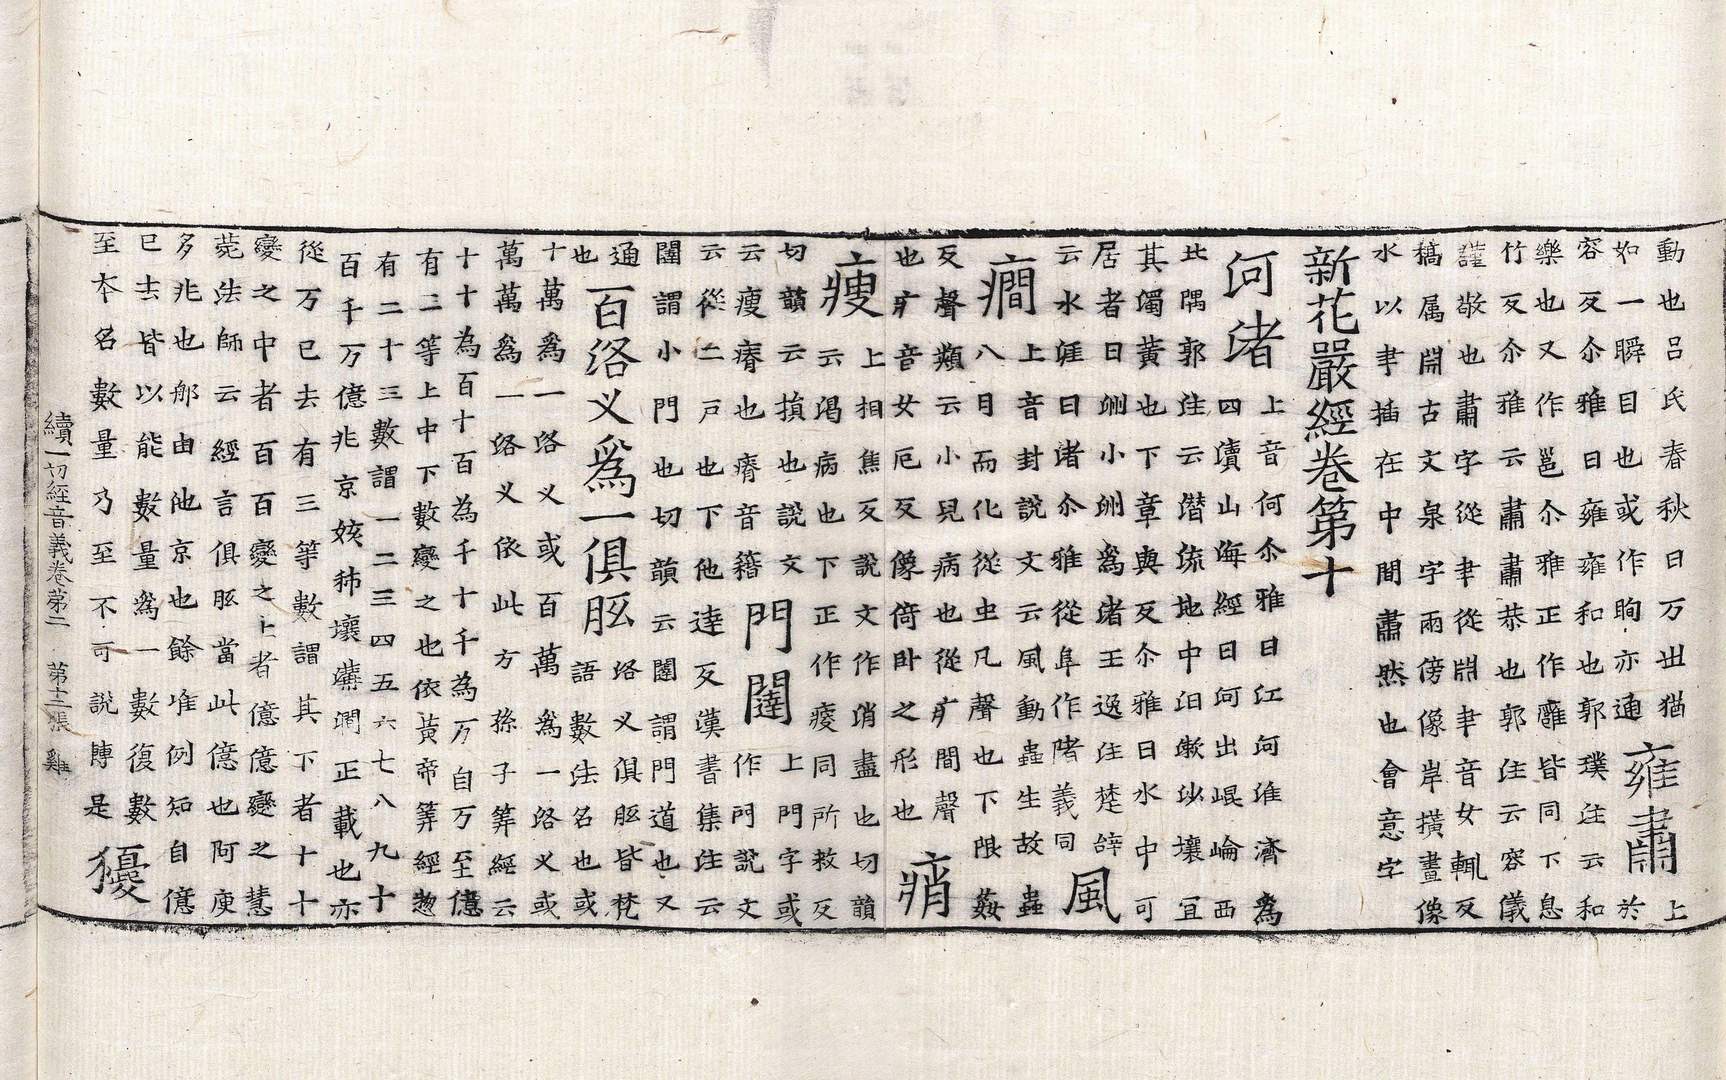 動也呂氏春秋曰万世猶
如一瞬目也或作眴亦通雍肅上於
容反尒雅曰雍雍和也郭璞注云和
樂也又作邕尒雅正作廱皆同下息
竹反尒雅云肅肅恭也郭注云容儀
謹敬也肅字從聿從𣶒聿音女輒反
㮣属𣶒古文泉字兩傍像岸橫畫像
水以聿插在中間肅然也會意字
新花嚴經卷第十
河渚上音何尒雅曰江河淮濟爲
四瀆山海經曰河出崐崘西
北隅郭注云潛流地中汩漱沙壤宜
其濁黃也下章與反尒雅曰水中可
居者曰洲小洲爲渚王逸注楚辝
云水涯曰渚尒雅從阜作陼義同風
癎上音封說文云風動蟲生故蟲
八日而化從虫凡聲也下限姦
反聲類云小兒病也從疒間聲
也疒音女厄反像倚卧之形也痟
痩上相焦反說文作消盡也切韻
云渴病也下正作瘦同所救反
切韻云損也說文
云瘦瘠也瘠音籍門闥上門字或作門說文
云從二戸也下他達反漢書集注云
闥謂小門也切韻云闥謂門道也又
通也百洛义爲一俱胝洛义俱胝皆梵語數法名也或
十萬爲一洛义或百萬爲一洛义或
萬萬爲一洛义依此方孫子筭經云
十十為百十百為千十千為万自万至億
有二等上中下數變之也依黃帝筭經惣
有二十三數謂一二三四五六七八九十
百千万億兆京姟秭壤溝澗正載也亦
從万已去有三等數謂其下者十十
變之中者百百變之上者億億變之慧
菀法師云經言俱胝當此億也阿庾
多兆也那由他京也餘准例知自億
已去皆以能數量爲一數復數
至本名數量乃至不可說轉是擾
續一切經音義卷第二 第十二張 雞